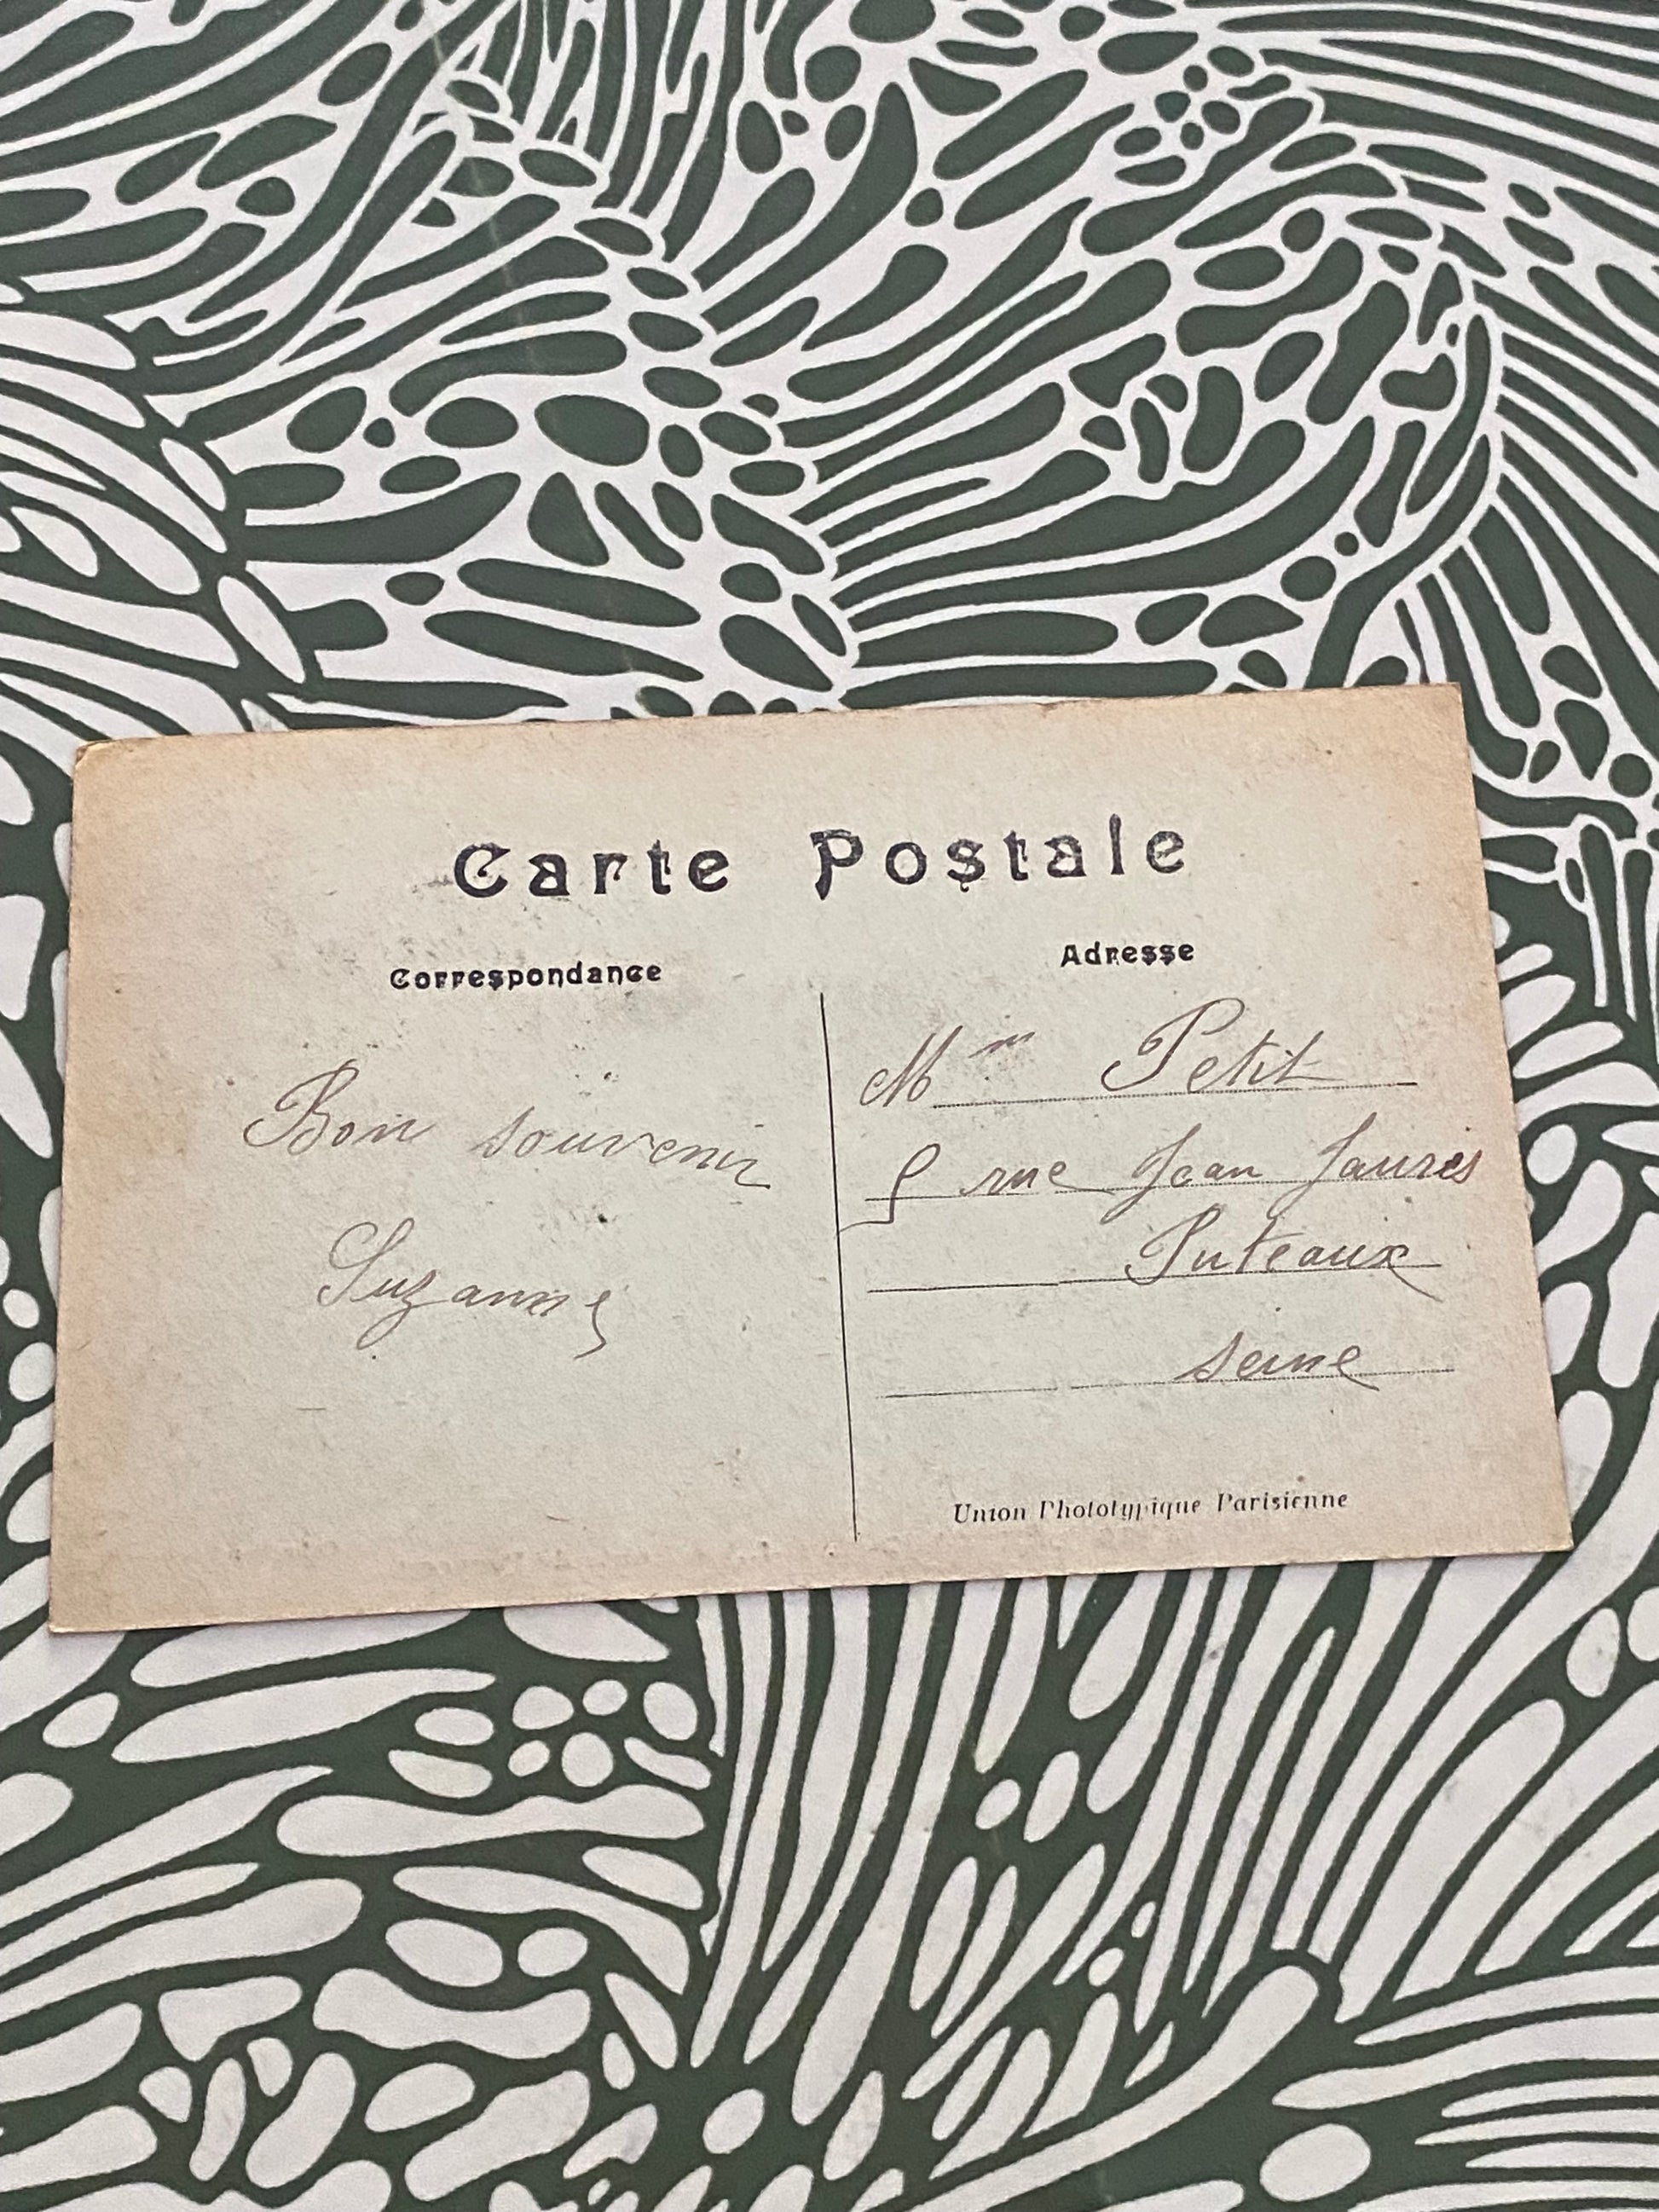 Carte Postale
Correspondance
Bon souvenir
Suzanne
Adresse
Mme Petit
rue Jean Jaures
Puteaux
seine
Union Phototypique Parisienne